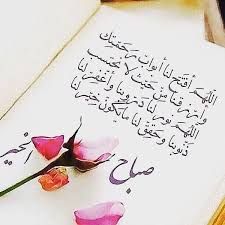 اللهم أفتح لنا أبواب رحمتك
وارزقنا من حيث لا نحتسب
اللهم نور لنا دروبنا وأغفر لنا
ذنوبنا وحقق لنا مايكون خير لنا
صباح الخير